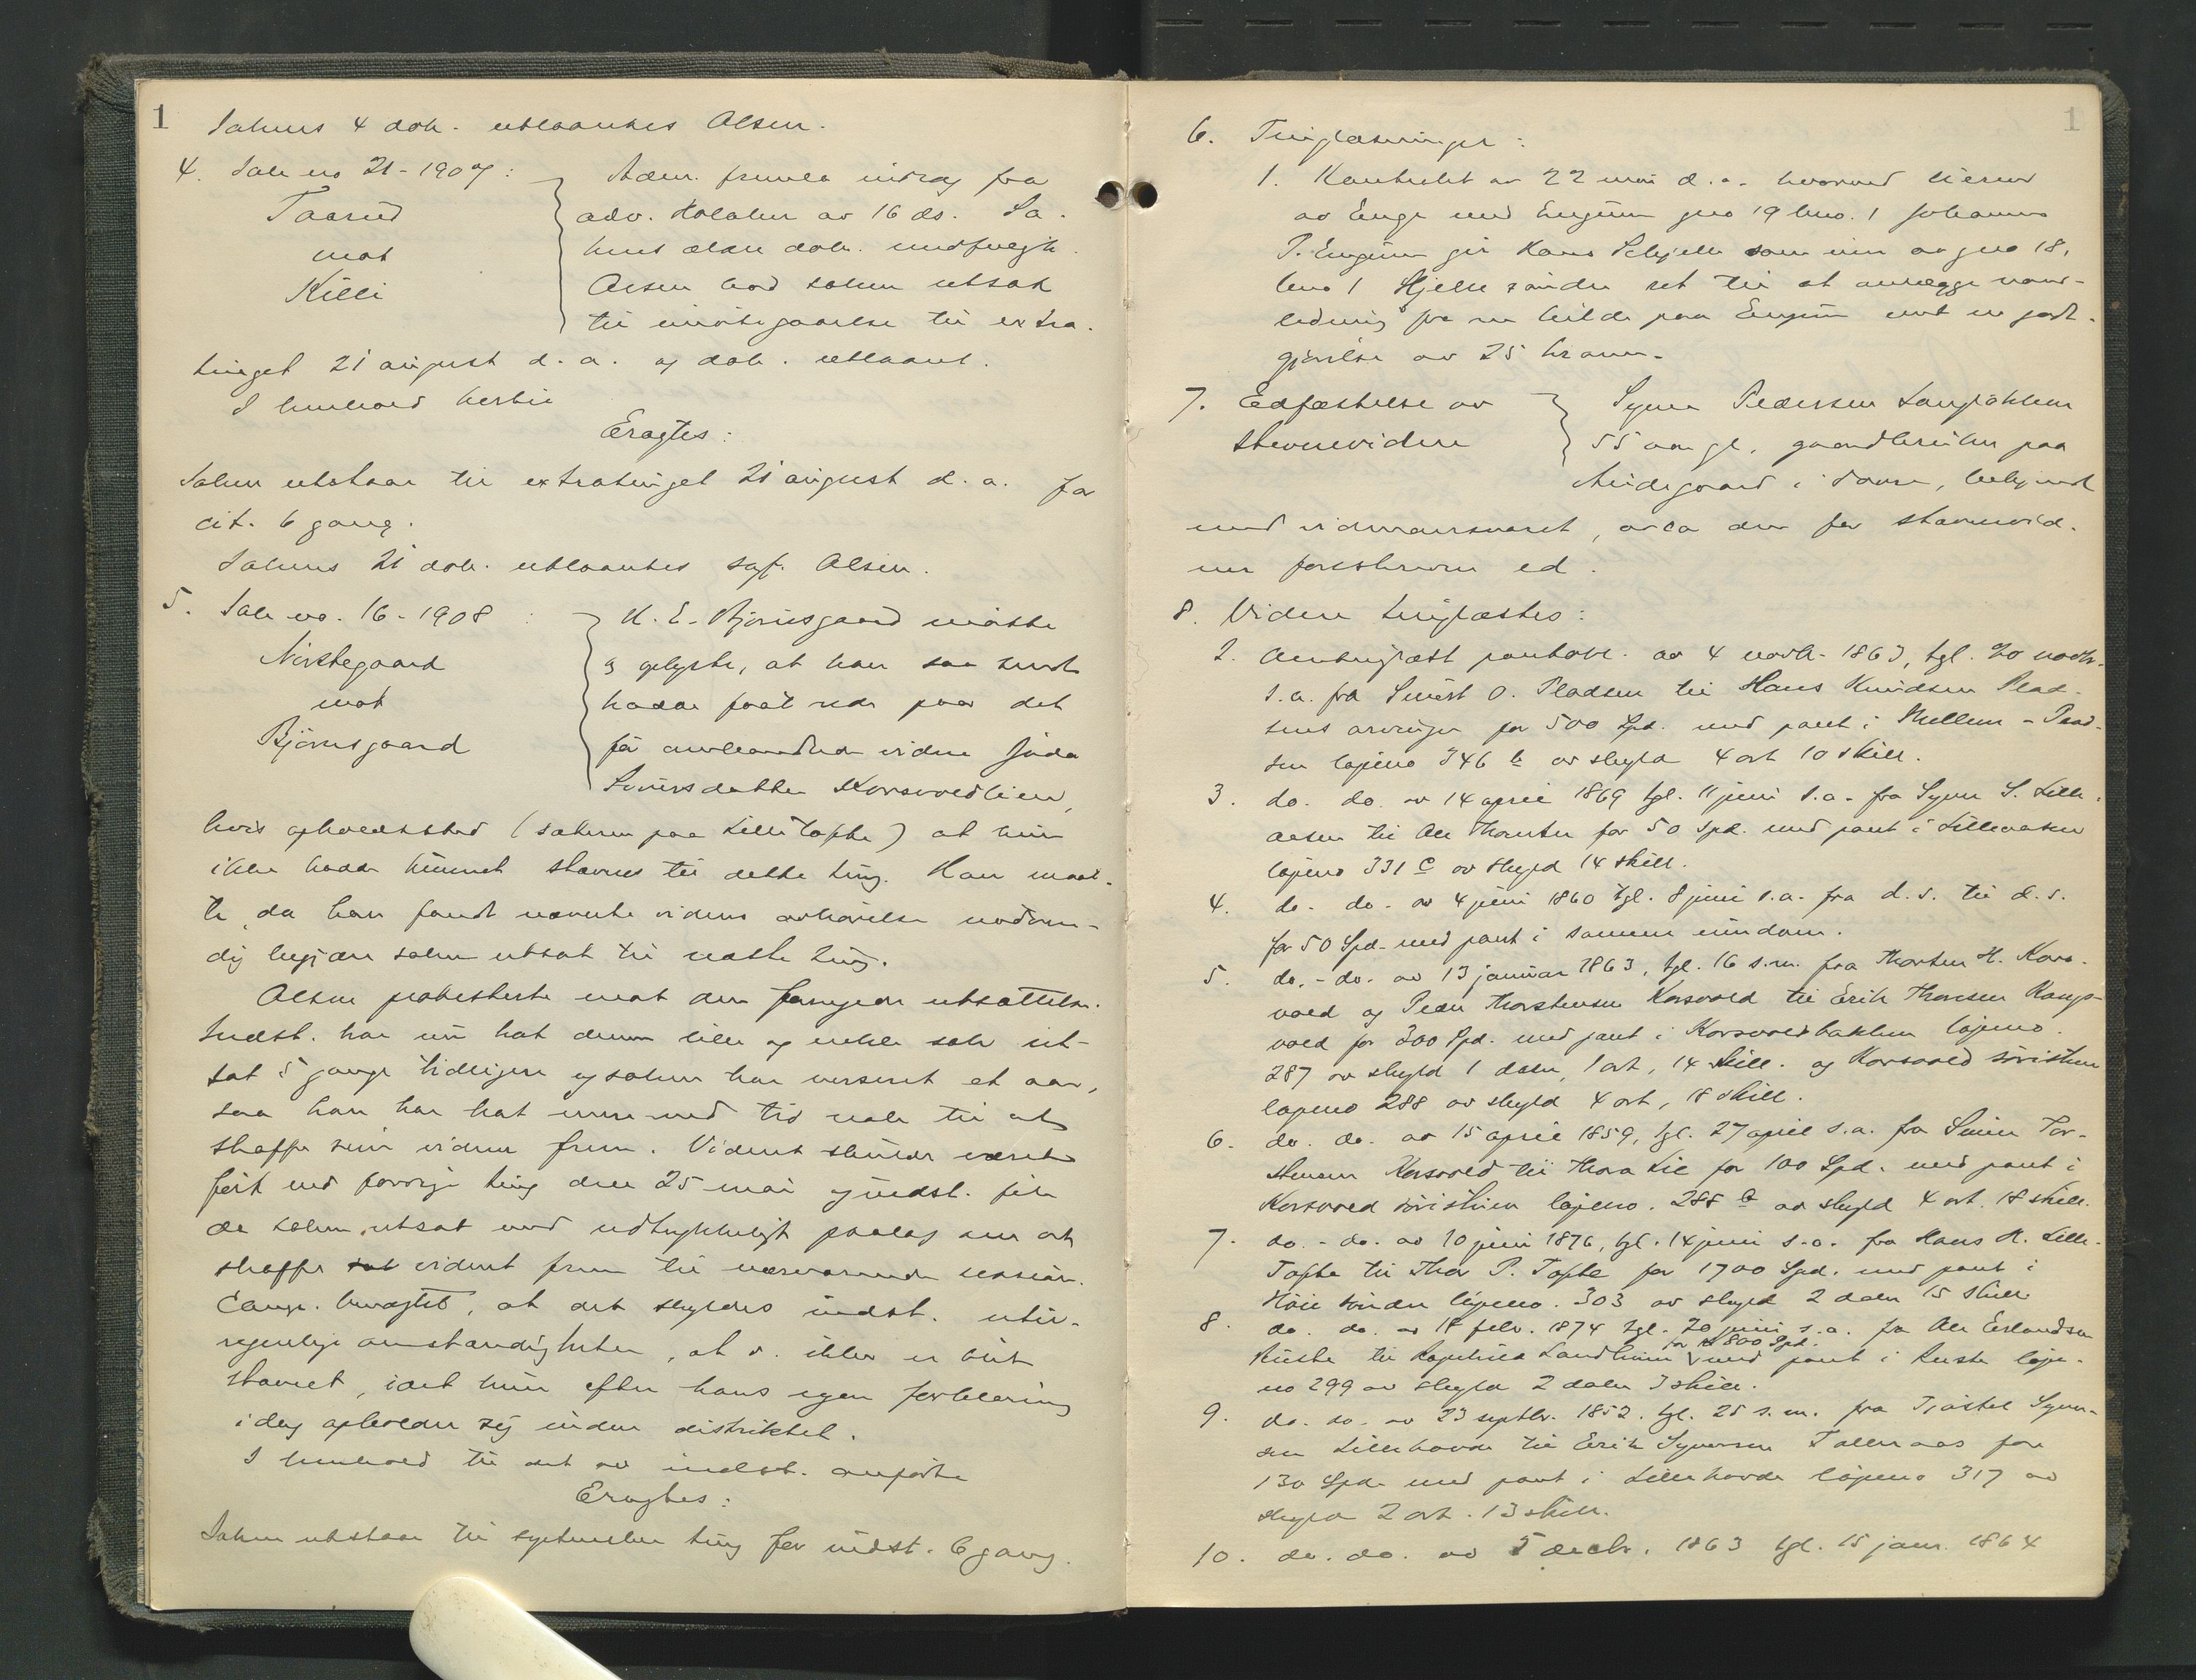 1
Sakens 4 dok. utlaantes Olsen.
4. Sak no 21-1907:
Taarud
mot
Killi
Adm. fremla indlæg fra
adv. Holaker av 16 ds. Sa-
kens ældre dok. medfulgte.
Olsen bad saken utsat
til imötegaaelse til extra-
tinget 21 august d. a. og dok. utlaant.
I henhold hertil
Eragtes:
Saken utstaar til extratinget 21 august d. a. for
cit. 6 gang.
Sakens 21 dok. utlaantes sgf. Olsen.
5. Sak no. 16-1908:
Nörstegaard
mot
Björnsgaard
K. E. Björnsgaard mötte
og oplyste, at han saa sendt
hadde faat rede paa det
for anmeldte vidne Göda
Siversdatter Korsvoldlien,
hvis opholdssted (sæteren paa Lille Tofte) at hun
ikke hadde kunnet stevnes til dette ting. Han maat-
te, da han fandt nævnte vidnes avhörelse nödven-
dig begjære saken utsat til næste ting.
Olsen protesterte mot den forngede utsættelse.
Indst. har nu hat denne lille og enkle sak ut-
sat 5 gange tidligere og saken har verseret et aar,
saa han har hat mere end tid nok til at
skaffe sine vidner frem. Vidnet skulde været
fört ved forrige ting den 25 mai og indst. fik
da saken utsat med udtrykkeligt paalæg om at
skaffe vidnet frem til nærværende session.
Comp. benegted, at det skyldes indst. util-
regnelige omstændigheter, at v. ikke er blit
stevnet, idet hun efter hans egen forklaring
idag opholder sig inden distriktet.
I henhold til det av indst. anförte
Eragtes:
Saken utstaar til september ting for indst. 6 gang.
1
6. Tinglæsninger:
1. Kontrakt av 22 mai d.a. hvorved eieren
av Enge med Engum gno 19 bno. 1 Johannes
P. Engum gir Hans Schjelle som eier av gno 18,
bno 1 Hjelle söndre ret til at anlægge vand-
ledning fra en kilde paa Engum mot en godt-
gjörelse av 25 kroner.
7. Edfæstelse av
stevnevidne
Syver Pedersen Langlökken
55 aar gl., gaardbruker paa
Andegaard i Dovre, bekjendt
med vidneansvaret, avla den for stevnevid-
ner foreskrevne ed.
8. Videre tinglæstes:
2. Avlyst pantobl. av 4 novb. 1863, tgl. 20 novb.
s.a. fra Sivert O. Pladsen til Hans Knudsen Plad-
sens arvinger for 500 Spd. med pant i Mellem-Plad-
sen löpeno 346 b av skyld 4 ort 10 skill.
3. do. do. av 14 april 1869 tgl. 11 juni s.a. fra Syver S. Lille-
aasen til Ole Thorsten for 50 Spd. med pant i Lilleaasen
löpeno 331 c av skyld 14 skill.
4. do. do. av 4 juni 1860 tgl. 8 juni s.a. fra d.s. til d.s.
for 50 Spd. med pant i samme eindom.
5. do. - do. av 13 januar 1863, tgl. 16 s.m. fra Thorsten H. Kors-
vold og Peder Thorstensen Korsvold til Erik Thoresen Kongs-
vold for 300 Spd. med pant i Korsvoldbakken löpeno.
287 av skyld 1 daler, 1 ort, 14 skill. og Korsvold söristuen
löpeno 288 av skyld 4 ort, 18 skill.
6. do. do. av 15 april 1859, tgl. 27 april s.a. fra Simen Tor-
stensen Korsvold til Thora Lie for 100 Spd. med pant i
Korsvold söristuen löpeno. 288 b av skyld 4 ort. 18 skill.
7. do. - do. av 10 juni 1876, tgl. 14 juni s.a. fra Hans H. Lille-
Tofte til Thor P. Tofte for 1700 Spd. med pant i
Höie söndre löpeno. 303 av skyld 2 daler 15 skill
8. do. do. av 18 febr. 1874 tgl. 20 juni s.a. fra Ole Erlandsen
for 800 Spd.
Ruste til Landheim med pant i Ruste löpe-
no 299 av skyld 2 daler 3 skill.
9. do. do. av 23 septbr. 1852. tgl. 25 s.m. fra Tjöstel Syver-
sen Lillehovde til Erik Syversen Tollevaas for
130 Spd. med pant i Lillehovde löpeno 317 av
skyld 2 ort. 13 skill.
10. do. do. av 5 decbr. 1863 tgl. 15 jan. 1864